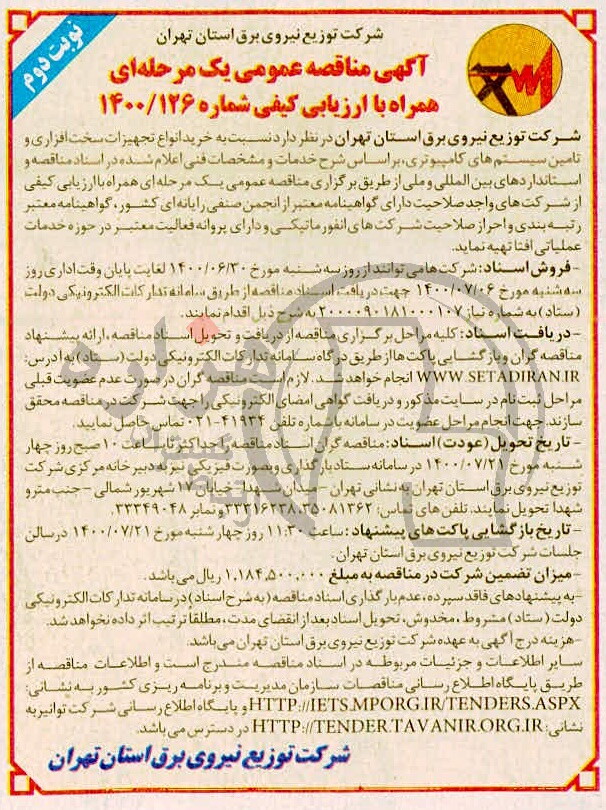 نوبت دوم
شرکت توزیع نیروی برق استان تهران
آگهی مناقصه عمومی یک مرحله‌ای
همراه با ارزیابی کیفی شماره ۱۴۰۰/۱۲۶
شرکت توزیع نیروی برق استان تهران در نظر دارد نسبت به خرید انواع تجهیزات سخت افزاری و
تامین سیستم های کامپیوتری، بر اساس شرح خدمات و مشخصات فنی اعلام شده در اسناد مناقصه و
استانداردهای بین المللی و ملی از طریق برگزاری مناقصه عمومی یک مرحله ای همراه با ارزیابی کیفی
از شرکت های واجد صلاحیت دارای گواهینامه معتبر از انجمن صنفی رایانه ای کشور، گواهینامه معتبر
رتبه بندی و احراز صلاحیت شرکت های انفورماتیکی و دارای پروانه فعالیت معتبر در حوزه خدمات
عملیاتی افتا تهیه نماید.
-فروش اسناد: شرکت ها می توانند از روز سه شنبه مورخ ۱۴۰۰/۰۶/۳۰ لغایت پایان وقت اداری روز
سه شنبه مورخ ۱۴۰۰/۰۷/۰۶ جهت دریافت اسناد مناقصه از طریق سامانه تدارکات الکترونیکی دولت
(ستاد) به شماره نیاز ۲۰۰۰۰۹۰۱۸۱۰۰۰۱۰۷ به شرح ذیل اقدام نمایند.
-دریافت اسناد: کلیه مراحل برگزاری مناقصه از دریافت و تحویل اسناد مناقصه، ارائه پیشنهاد
مناقصه گران و بازگشایی پاکت ها از طریق درگاه سامانه تدارکات الکترونیکی دولت (ستاد) به ادرس:
WWW.SETADIRAN.IR انجام خواهد شد. لازم است مناقصه گران در صورت عدم عضویت قبلی
مراحل ثبت نام در سایت مذکور و دریافت گواهی امضای الکترونیکی را جهت شرکت در مناقصه محقق
سازند. جهت انجام مراحل عضویت در سامانه با شماره تلفن ۴۱۹۳۴-۰۲۱ تماس حاصل نمایید.
-تاریخ تحویل (عودت) اسناد: مناقصه گران اسناد مناقصه را حداکثر تا ساعت ۱۰ صبح روز چهار
شنبه مورخ ۱۴۰۰/۰۷/۲۱ در سامانه ستاد بارگذاری و بصورت فیزیکی نیز به دبیرخانه مرکزی شرکت
توزیع نیروی برق استان تهران به نشانی تهران - میدان شهدا - خیابان ۱۷ شهریور شمالی - جنب مترو
شهدا تحویل نمایند. تلفن های تماس: ۳۵۰۸۱۳۶۲، ۳۳۳۱۶۲۳۸ و نمابر ۳۳۳۴۹۰۴۸.
-تاریخ بازگشایی پاکت های پیشنهاد: ساعت ۱۱:۳۰ روز چهار شنبه مورخ ۱۴۰۰/۰۷/۲۱ در سالن
جلسات شرکت توزیع نیروی برق استان تهران.
-میزان تضمین شرکت در مناقصه به مبلغ ۱،۱۸۴،۵۰۰،۰۰۰ ریال می باشد.
-به پیشنهادهای فاقد سپرده، عدم بارگذاری اسناد مناقصه (به شرح اسناد) در سامانه تدارکات الکترونیکی
دولت (ستاد) مشروط، مخدوش، تحویل اسناد بعد از انقضای مدت، مطلقا ترتیب اثر داده نخواهد شد.
-هزینه درج آگهی به عهده شرکت توزیع نیروی برق استان تهران می باشد.
سایر اطلاعات و جزئیات مربوطه در اسناد مناقصه مندرج است و اطلاعات مناقصه از
طریق پایگاه اطلاع رسانی مناقصات سازمان مدیریت و برنامه ریزی کشور به نشانی:
HTTP://IETS.MPORG.IR/TENDERS.ASPX و پایگاه اطلاع رسانی شرکت توانیر به
نشانی: HTTP://TENDER.TAVANIR.ORG.IR در دسترس می باشد.
شرکت توزیع نیروی برق استان تهران